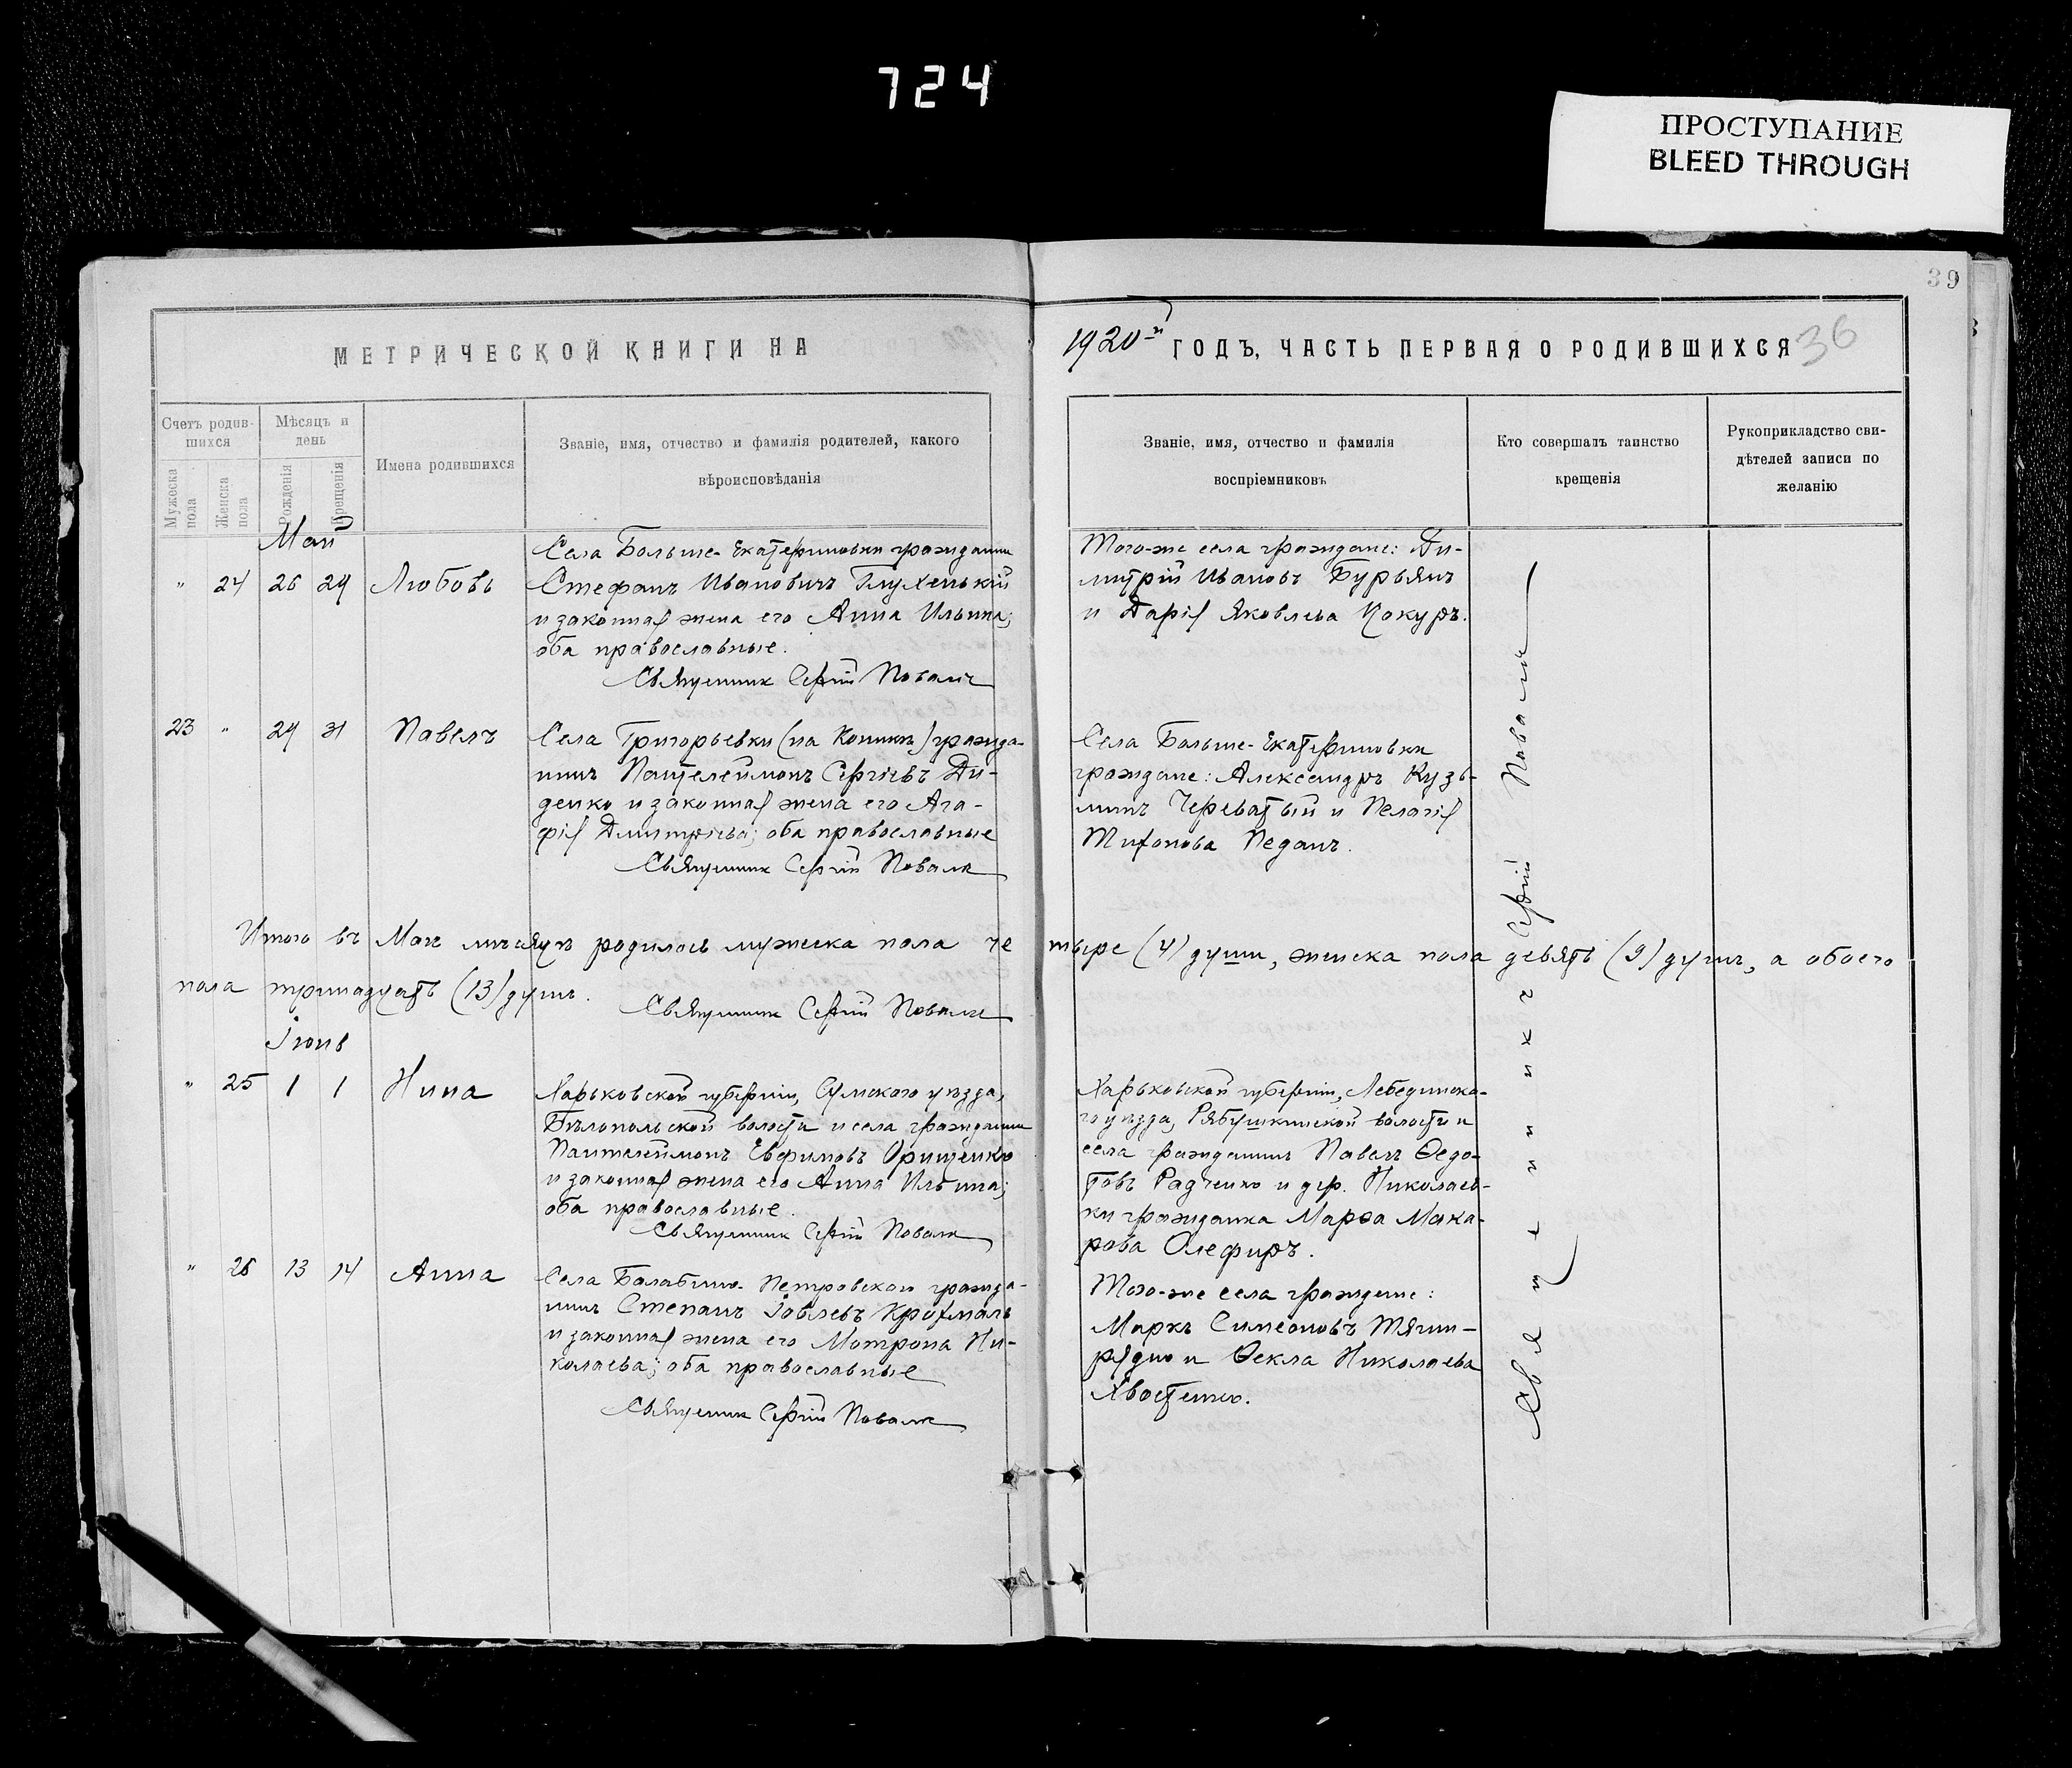 724
ПРОСТУПАНИЕ
BLEED THROUGH
39
36
МЕТРИЧЕСКОЙ КНИГИ НА
1920й ГОДЪ, ЧАСТЬ ПЕРВАЯ О РОДИВШИХСЯ
Счетъ родив-
шихся
Мужеска пола
Женска пола
Мѣсяцъ и
день
Рожденія
Крещенія
Имена родившихся
Званіе, имя, отчество и фамилія родителей, какого
вѣроисповѣданія
Званіе, имя, отчество и фамилія
воспріемниковъ
Кто совершалъ таинство
крещенія
Рукоприкладство сви-
дѣтелей записи по
желанію
Май
" 24 26 29 Любовь
Села Больше-Екатериновки гражданинъ
Стефанъ Ивановичъ Глухенькій
и законная жена его Анна Ильина;
оба православные.
Священник Сергій Повал
Того-же села граждане: Ди-
митрій Ивановъ Бурьянъ
и Дарія Яковлева Кокуръ.
23 " 29 31 Павелъ
Села Григорьевки (на Конкѣ) гражда-
нинъ Пантелеймонъ Сергіевъ Ди-
денко и законная жена его Ага-
фія Димитріева; оба православные
Священник Сергій Повал
Села Больше-Екатериновки
граждане: Александръ Кузь-
минъ Череватый и Пелагія
Тихонова Педанъ.
Итого въ Маѣ мѣсяцѣ родилось мужеска пола че тыре (4) души, женска пола девять (9) душъ, а обоего
пола тринадцать (13) душъ.
Священник Сергій Повал
Іюнь
" 25 1 1 Нина
Харьковской губерніи, Сумского уѣзда,
Бѣлопольской волости и села гражданинъ
Пантелеймонъ Евфимовъ Орищенко
и законная жена его Анна Ильина;
оба православные.
Священник Сергій Повал
Харьковской губерніи, Лебединска-
го уѣзда, Рябушкинской волости и
села гражданинъ Павелъ Ѳедо-
товъ Радченко и дер. Николаев-
ки гражданка Марѳа Мака-
рова Олефиръ.
" 26 13 14 Анна
Села Балабино-Петровскаго гражда-
нинъ Степанъ Іовлевъ Крохмаль
и законная жена его Мотрона Ни-
колаева; оба православные
Священник Сергій Повал
Того-же села граждане:
Маркъ Симеоновъ Тягни-
рядно и Ѳекла Николаева
Хвостенко.
Священникъ Сергій